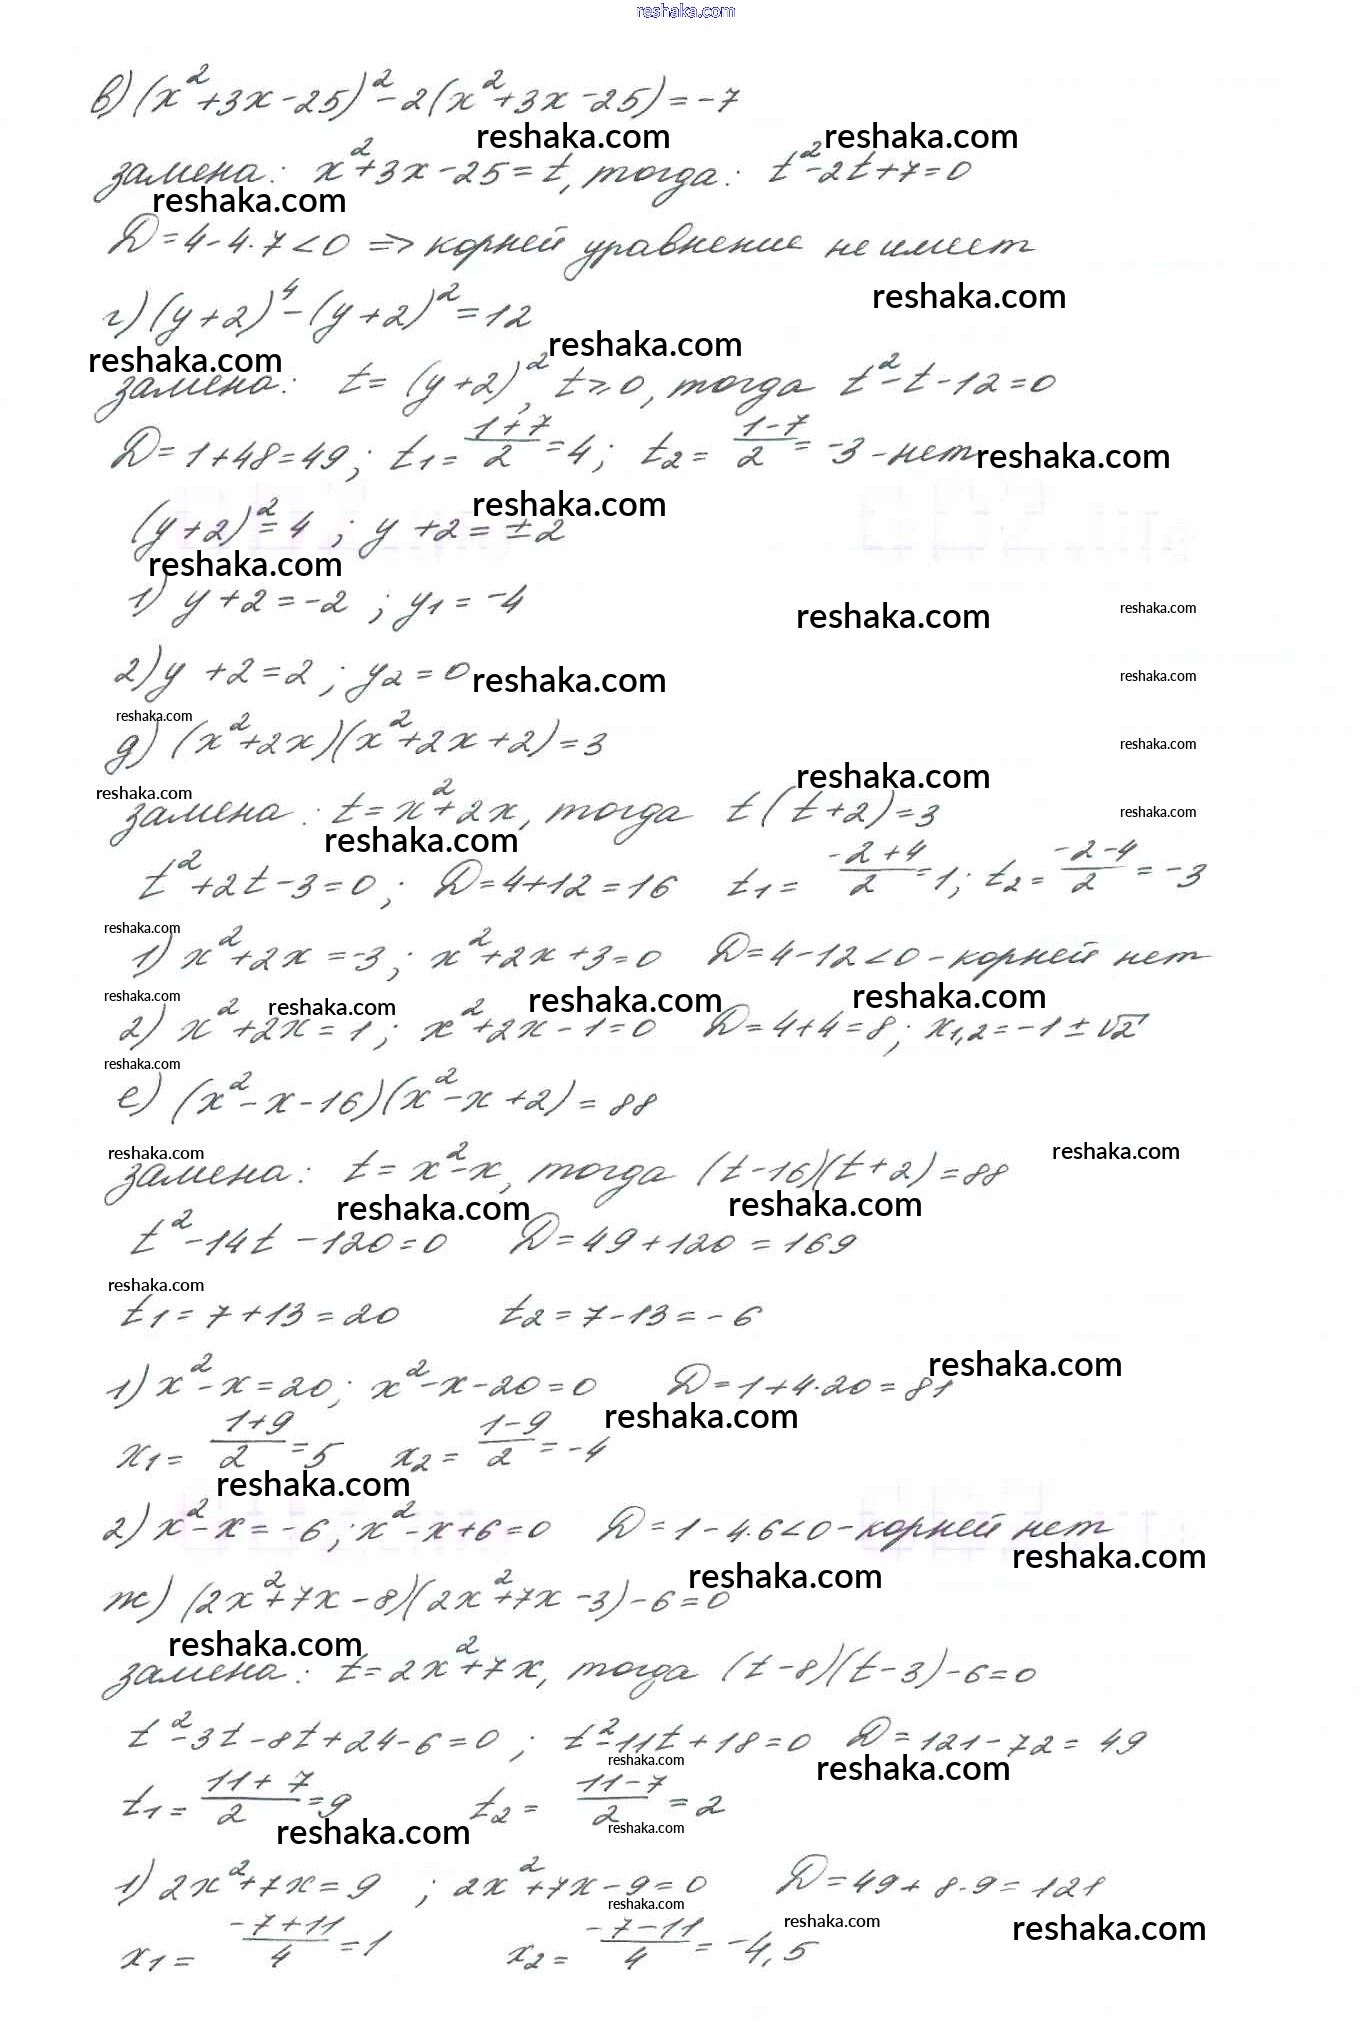 reshaka.com
в) (x²+3x-25)²-2(x²+3x-25)=-7
reshaka.com reshaka.com
замена: x²+3x-25=t, тогда: t²-2t+7=0
reshaka.com
D=4-4·7<0 => корней уравнение не имеет
reshaka.com
г) (y+2)⁴-(y+2)²=12
reshaka.com reshaka.com
замена: t=(y+2)², t≥0, тогда t²-t-12=0
D=1+48=49; t₁=(1+7)/2=4; t₂=(1-7)/2=-3-нет reshaka.com
reshaka.com
(y+2)²=4; y+2=±2
reshaka.com
1) y+2=-2; y₁=-4
reshaka.com reshaka.com
2) y+2=2; y₂=0 reshaka.com reshaka.com
reshaka.com
д) (x²+2x)(x²+2x+2)=3 reshaka.com
reshaka.com reshaka.com
замена: t=x²+2x, тогда t(t+2)=3 reshaka.com
reshaka.com
t²+2t-3=0; D=4+12=16 t₁=(-2+4)/2=1; t₂=(-2-4)/2=-3
reshaka.com
1) x²+2x=-3; x²+2x+3=0 D=4-12<0-корней нет
reshaka.com reshaka.com reshaka.com reshaka.com
2) x²+2x=1; x²+2x-1=0 D=4+4=8; x₁,₂=-1±√2
reshaka.com
е) (x²-x-16)(x²-x+2)=88
reshaka.com reshaka.com
замена: t=x²-x, тогда (t-16)(t+2)=88
reshaka.com reshaka.com
t²-14t-120=0 D=49+120=169
reshaka.com
t₁=7+13=20 t₂=7-13=-6
reshaka.com
1) x²-x=20; x²-x-20=0 D=1+4·20=81
reshaka.com
x₁=(1+9)/2=5 x₂=(1-9)/2=-4
reshaka.com
2) x²-x=-6; x²-x+6=0 D=1-4·6<0-корней нет
reshaka.com reshaka.com
ж) (2x²+7x-8)(2x²+7x-3)-6=0
reshaka.com
замена: t=2x²+7x, тогда (t-8)(t-3)-6=0
t²-3t-8t+24-6=0; t²-11t+18=0 D=121-72=49
reshaka.com reshaka.com
t₁=(11+7)/2=9 t₂=(11-7)/2=2
reshaka.com reshaka.com
1) 2x²+7x=9; 2x²+7x-9=0 D=49+8·9=121
reshaka.com reshaka.com reshaka.com
x₁=(-7+11)/4=1 x₂=(-7-11)/4=-4,5